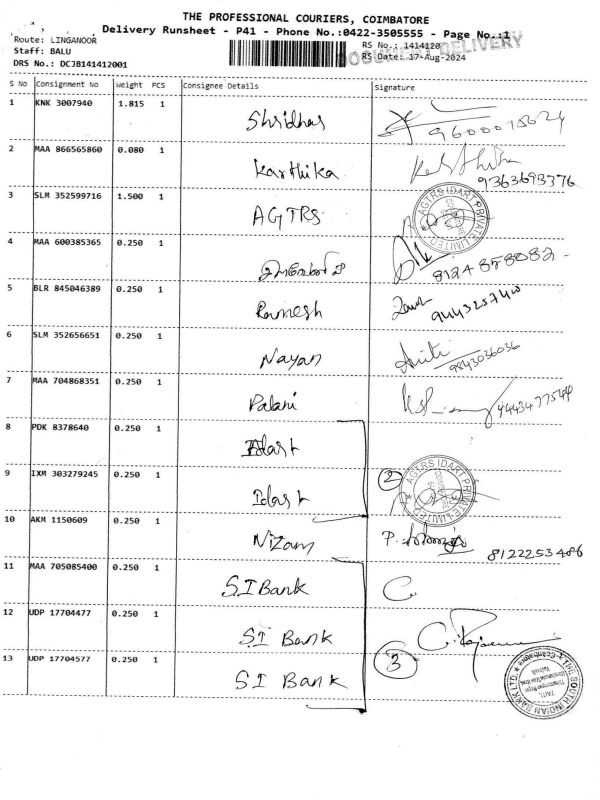 THE PROFESSIONAL COURIERS, COIMBATORE
Delivery Runsheet - P41 - Phone No.:0422-3505555 - Page No.:1
Route: LINGANOOR
Staff: BALU
DRS No.: DCJB141412001
RS No.: 1414120
RS Date: 17-Aug-2024
DOCUMENT DELIVERY
S No Consignment No Weight PCS Consignee Details Signature
1 KNK 3007940 1.815 1 Shridhar 9600015624
2 MAA 866565860 0.080 1 Karthika 9363693376
3 SLM 352599716 1.500 1 AGTRS
AGTRS IDART PRIVATE LIMITED
4 MAA 600385365 0.250 1 8124858082
5 BLR 845046389 0.250 1 Ramesh
6 SLM 352656651 0.250 1 Nayan 9843036036
7 MAA 704868351 0.250 1 Palani
8 PDK 8378640 0.250 1
9 IXM 303279245 0.250 1 Idart 2
AGTRS IDART PRIVATE LIMITED
10 AKM 1150609 0.250 1 Nizam 8122253486
11 MAA 705085400 0.250 1 S.I Bank
12 UDP 17704477 0.250 1 S.I Bank
13 UDP 17704577 0.250 1 S I Bank 3
THE SOUTH INDIAN BANK LTD.